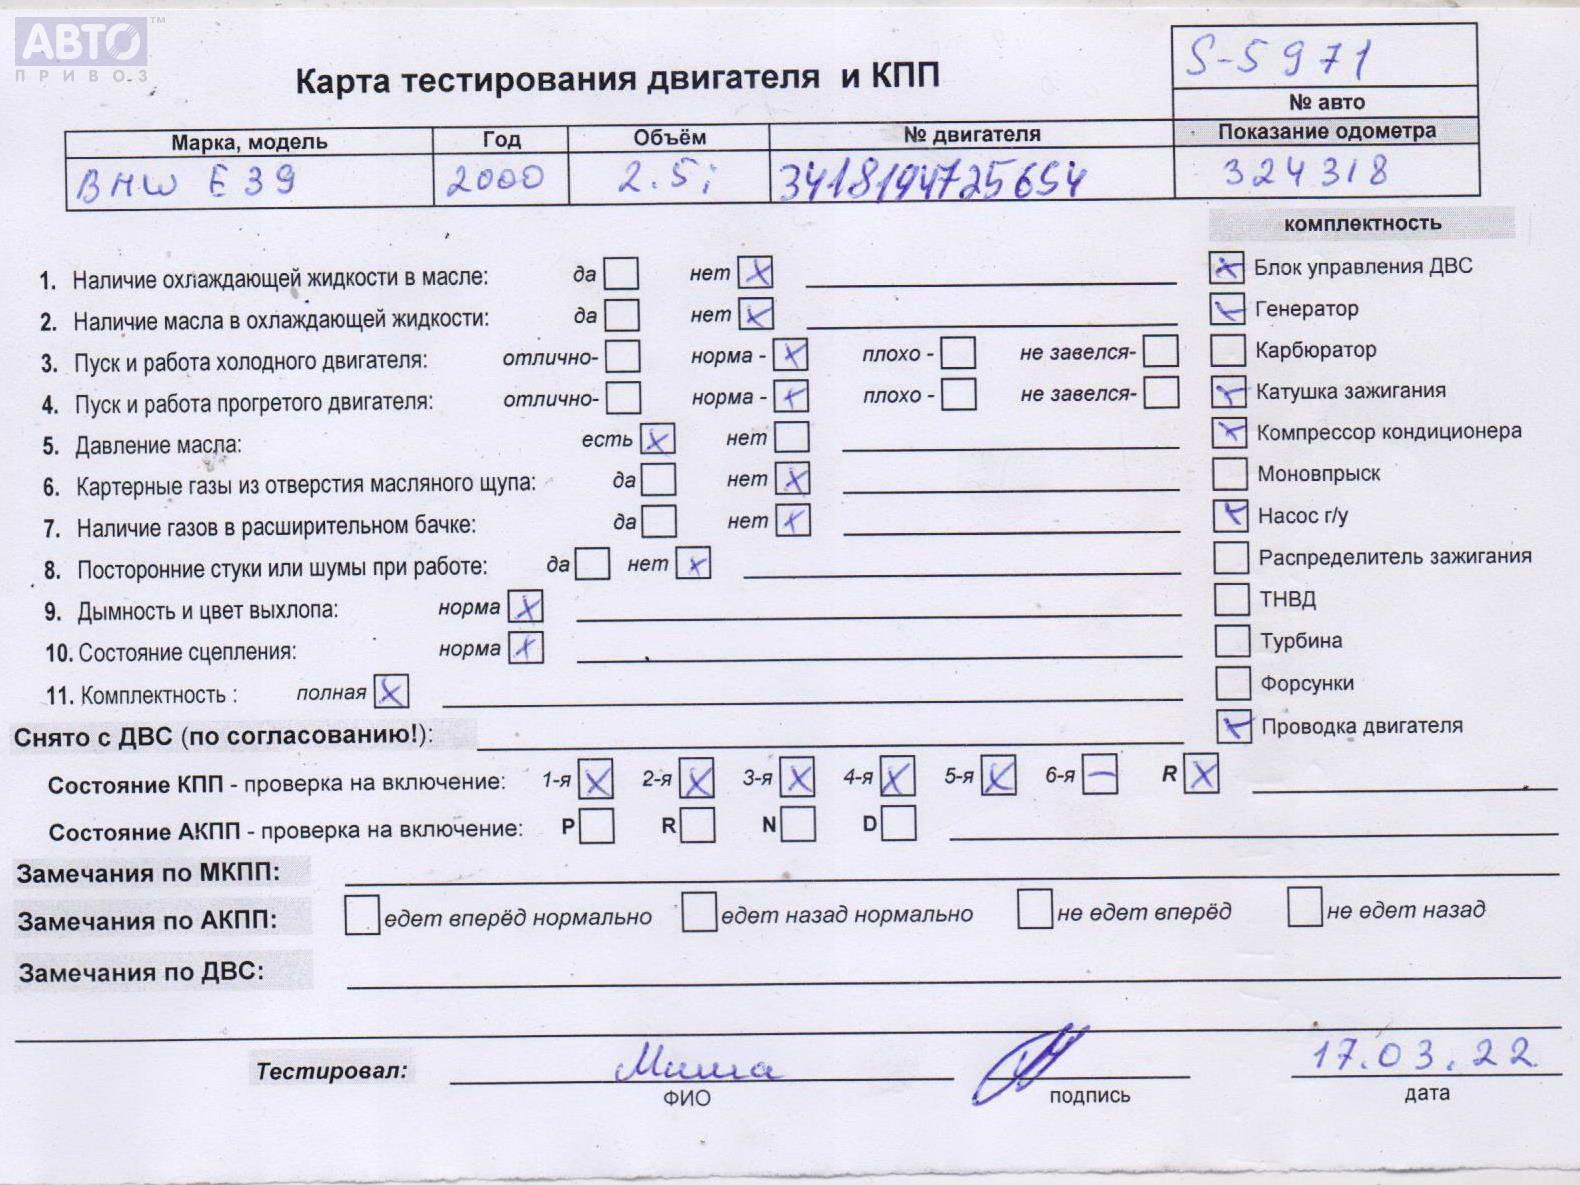 АВТО ТМ
ПРИВОЗ
Карта тестирования двигателя и КПП
S-5971
№ авто
Марка, модель Год Объём № двигателя Показание одометра
BMW E39 2000 2.5i 3418194725654 324318
комплектность
1. Наличие охлаждающей жидкости в масле: да нет X
2. Наличие масла в охлаждающей жидкости: да нет X
3. Пуск и работа холодного двигателя: отлично- норма - X плохо - не завелся-
4. Пуск и работа прогретого двигателя: отлично- норма - X плохо - не завелся-
5. Давление масла: есть X нет
6. Картерные газы из отверстия масляного щупа: да нет X
7. Наличие газов в расширительном бачке: да нет X
8. Посторонние стуки или шумы при работе: да нет X
9. Дымность и цвет выхлопа: норма X
10. Состояние сцепления: норма X
11. Комплектность : полная X
X Блок управления ДВС
X Генератор
Карбюратор
X Катушка зажигания
X Компрессор кондиционера
Моновпрыск
X Насос г/у
Распределитель зажигания
ТНВД
Турбина
Форсунки
X Проводка двигателя
Снято с ДВС (по согласованию!):
Состояние КПП - проверка на включение: 1-я X 2-я X 3-я X 4-я X 5-я X 6-я — R X
Состояние АКПП - проверка на включение: P R N D
Замечания по МКПП:
Замечания по АКПП: едет вперёд нормально едет назад нормально не едет вперёд не едет назад
Замечания по ДВС:
Тестировал: Миша 17.03.22
ФИО подпись дата